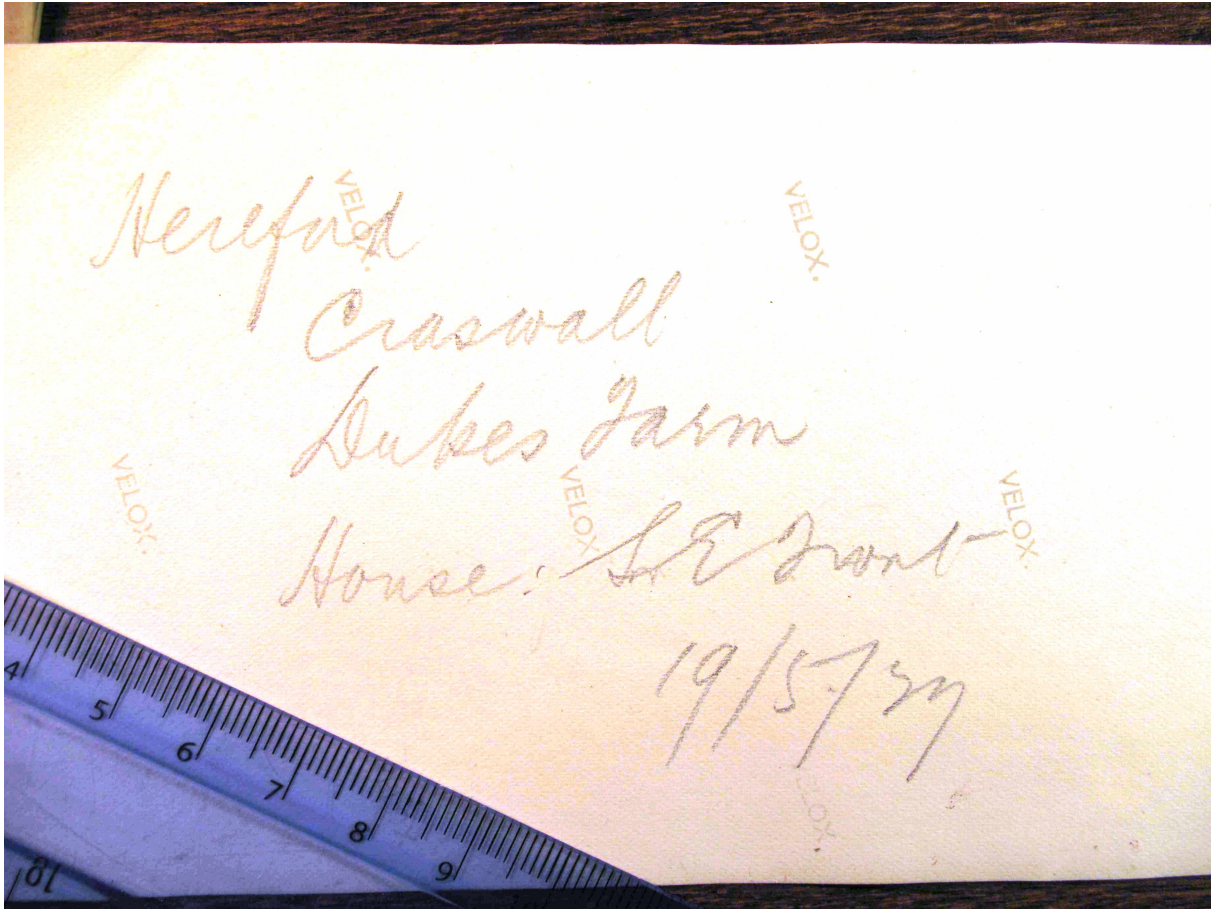 Hereford
Craswall
Dukes Farm
House: S.E Front
19/5/37
VELOX.
VELOX.
VELOX.
VELOX.
VELOX.
4 5 6 7 8 9
18